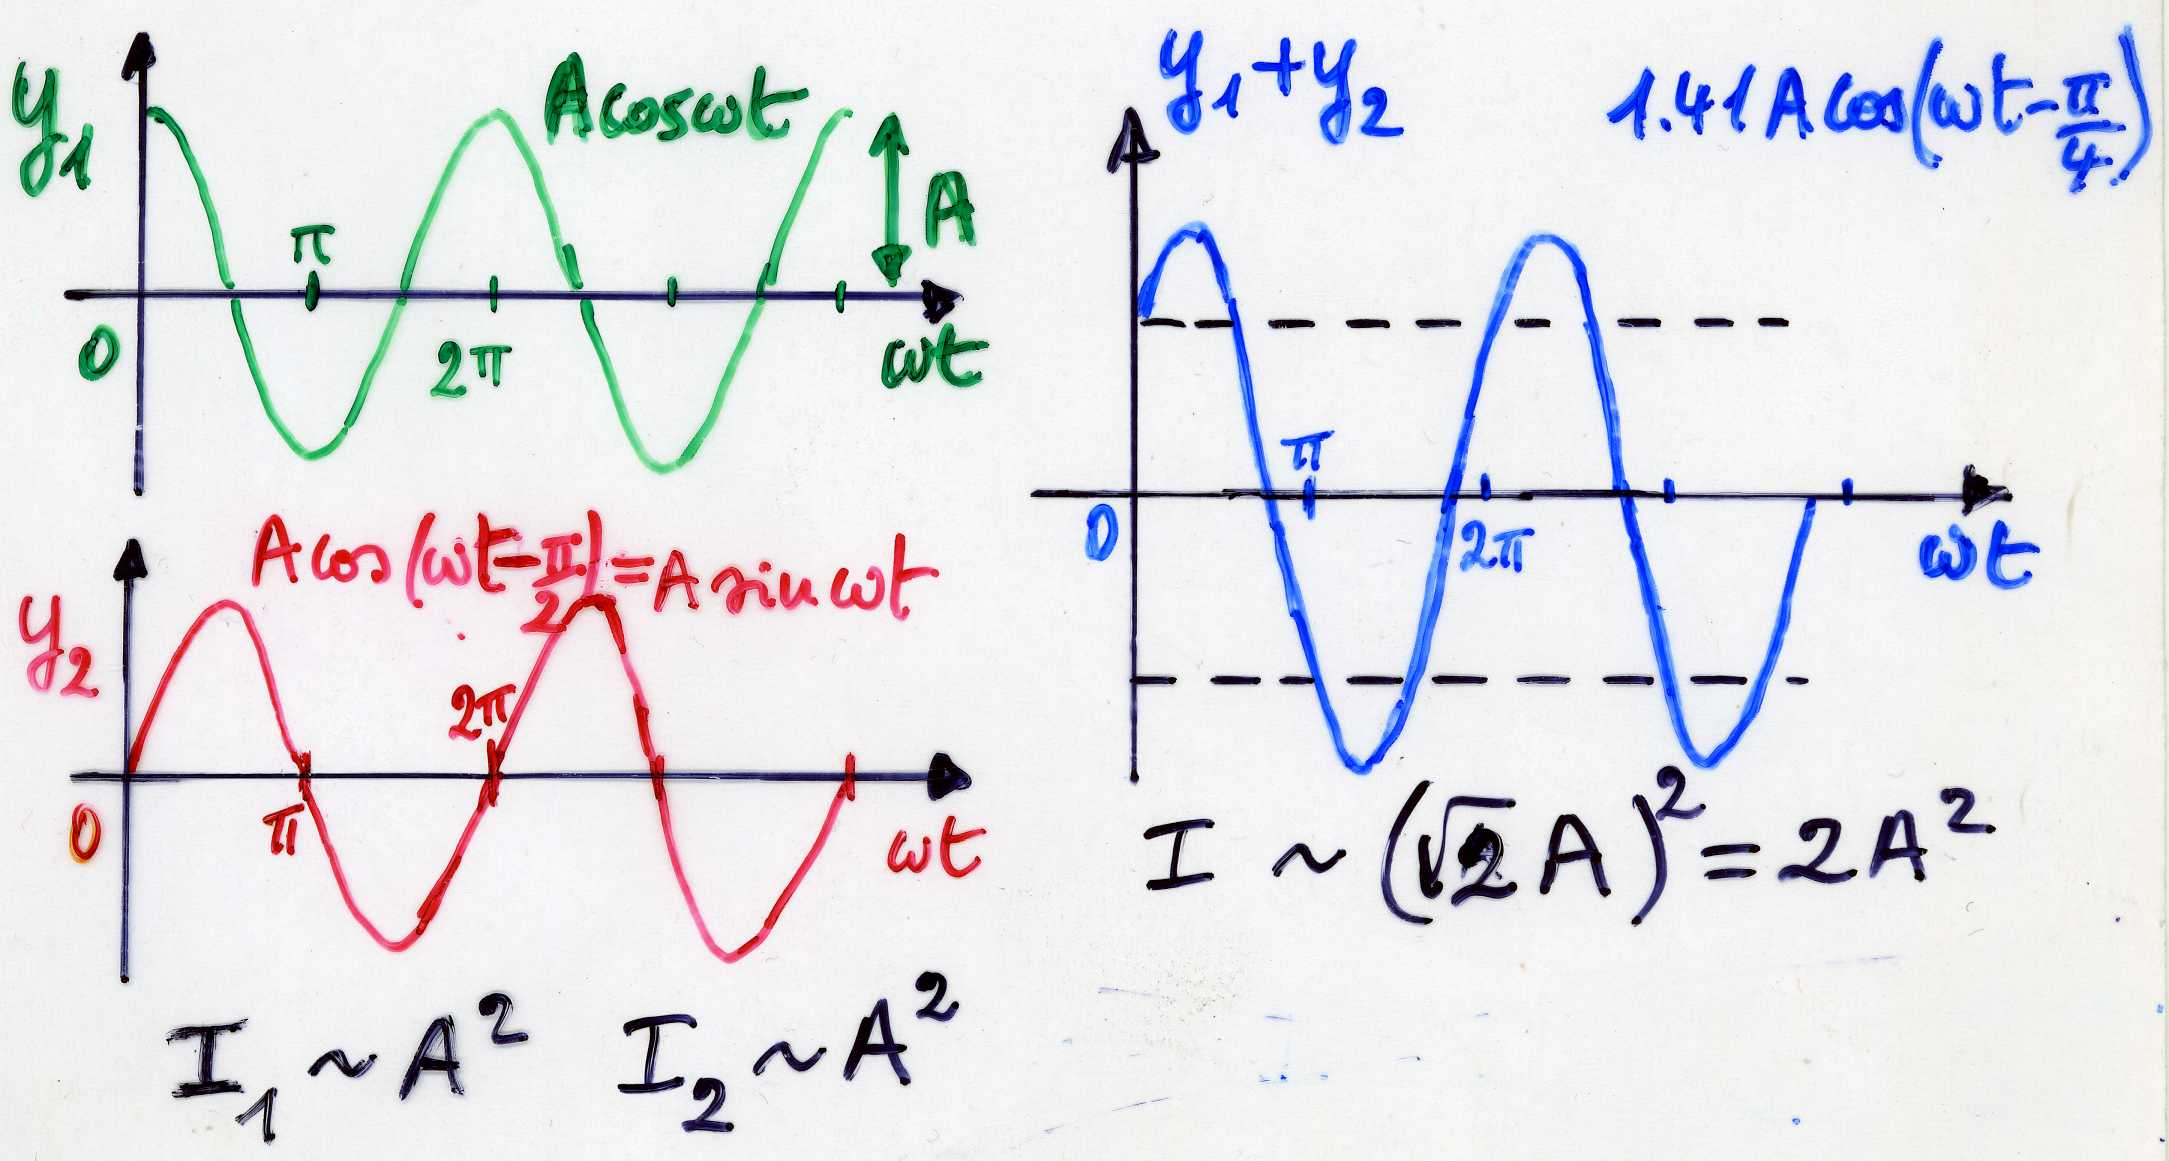 y₁
A cos ωt
A
π
0
2π
ωt
A cos(ωt-π/2)=A sin ωt
y₂
2π
0
π
ωt
I₁ ~ A² I₂ ~ A²
y₁+y₂
1.41 A cos(ωt-π/4)
π
0
2π
ωt
I ~ (√2 A)² = 2A²